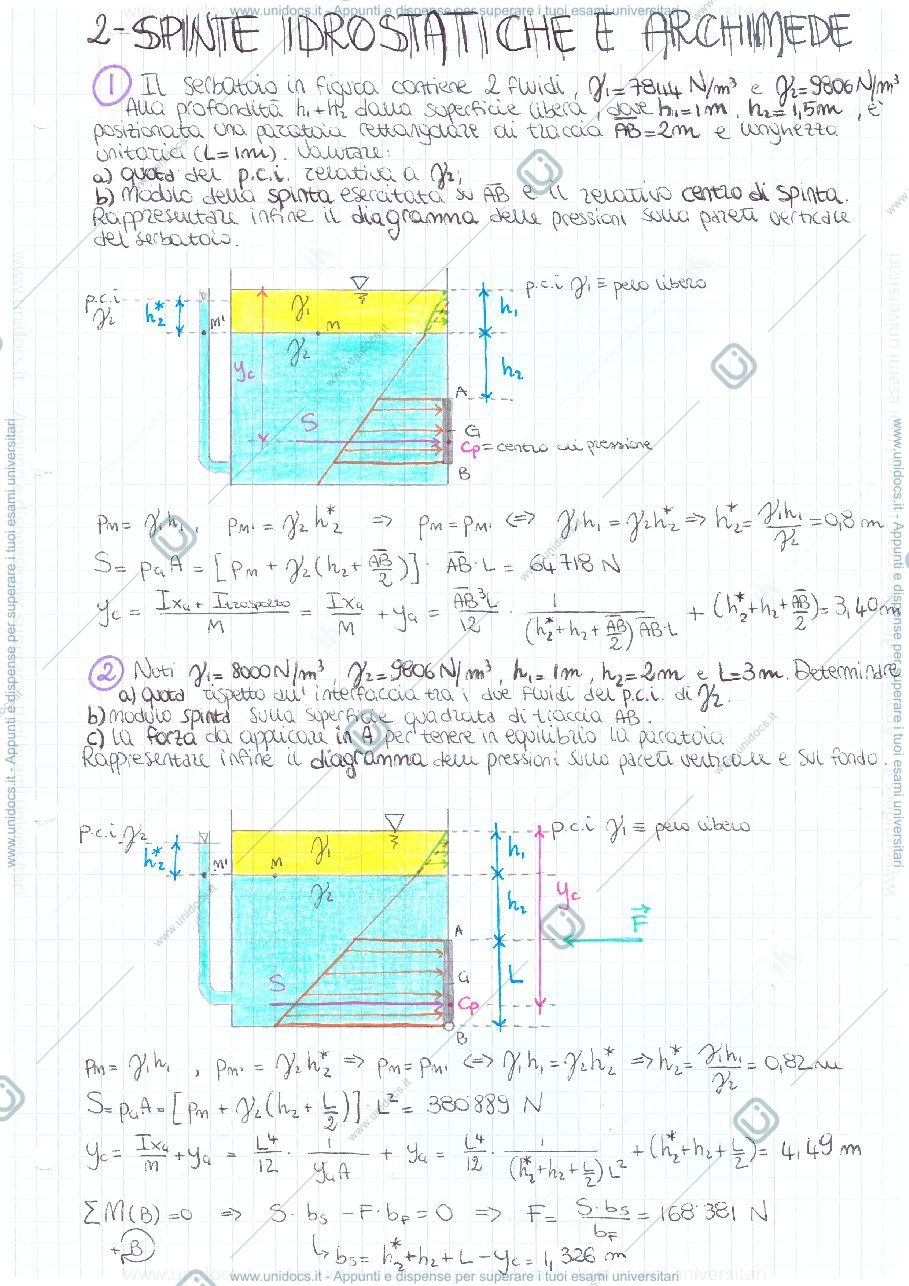 www.unidocs.it - Appunti e dispense per superare i tuoi esami universitari
2 - SPINTE IDROSTATICHE E ARCHIMEDE
① Il serbatoio in figura contiene 2 fluidi, γ₁=7844 N/m³ e γ₂=9806 N/m³
Alla profondità h₁+h₂ dalla superficie libera, dove h₁=1m, h₂=1,5m, è
posizionata una paratoia rettangolare di traccia AB=2m e lunghezza
unitaria (L=1m). Valutare:
a) quota del p.c.i. relativa a γ₂;
b) Modulo della spinta esercitata su AB e il relativo centro di spinta.
Rappresentare infine il diagramma delle pressioni sulla pareti verticale
del serbatoio.
p.c.i γ₁ ≡ pelo libero
p.c.i
γ₂
h₂*
M'
γ₁
M
h₁
γ₂
yc
h₂
A
S
G
Cp = centro di pressione
B
pM = γ₁h₁ , pM' = γ₂h₂* => pM = pM' <=> γ₁h₁ = γ₂h₂* => h₂* = γ₁h₁/γ₂ = 0,8 m
S = pG A = [pM + γ₂(h₂ + AB/2)] · AB · L = 64718 N
yc = (IxG + Itrasporto)/M = IxG/M + yG = AB³L/12 · 1/((h₂*+h₂+AB/2) AB·L) + (h₂*+h₂+AB/2) = 3,40 m
② Noti γ₁=8000N/m³, γ₂=9806 N/m³, h₁=1m, h₂=2m e L=3m. Determinare
a) quota rispetto all'interfaccia tra i due fluidi del p.c.i. di γ₂.
b) modulo spinta sulla superficie quadrata di traccia AB.
c) La forza da applicare in A per tenere in equilibrio la paratoia
Rappresentare infine il diagramma delle pressioni sulla pareti verticale e sul fondo.
p.c.i γ₂
p.c.i γ₁ ≡ pelo libero
h₂*
M'
M
γ₁
h₁
γ₂
h₂
yc
A
F
G
L
S
Cp
B
pM = γ₁h₁ , pM' = γ₂h₂* => pM = pM' <=> γ₁h₁ = γ₂h₂* => h₂* = γ₁h₁/γ₂ = 0,82 m
S = pG A = [pM + γ₂(h₂ + L/2)] · L² = 380889 N
yc = IxG/M + yG = L⁴/12 · 1/(yG A) + yG = L⁴/12 · 1/((h₂*+h₂+L/2) L²) + (h₂*+h₂+L/2) = 4,49 m
ΣM(B) = 0 => S·bs − F·bF = 0 => F = S·bs/bF = 168381 N
+B
↳ bs = h₂*+h₂+L−yc = 1,326 m
www.unidocs.it - Appunti e dispense per superare i tuoi esami universitari